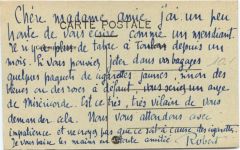 Chère madame amie j'ai un peu
honte de vous écrire comme un mendiant.
Il n'y a plus de tabac à Toulon depuis un
mois. Si vous pouviez jeter dans vos bagages
CARTE POSTALE
quelques paquets de cigarettes jaunes, sinon des
bleues ou des roses à défaut, vous seriez un ange
de Miséricorde. Est ce très, très vilain de vous
demander cela. Nous vous attendons avec
impatience et ne croyez pas que ce soit à cause des cigarettes.
Je vous baise les mains en amitié Robert